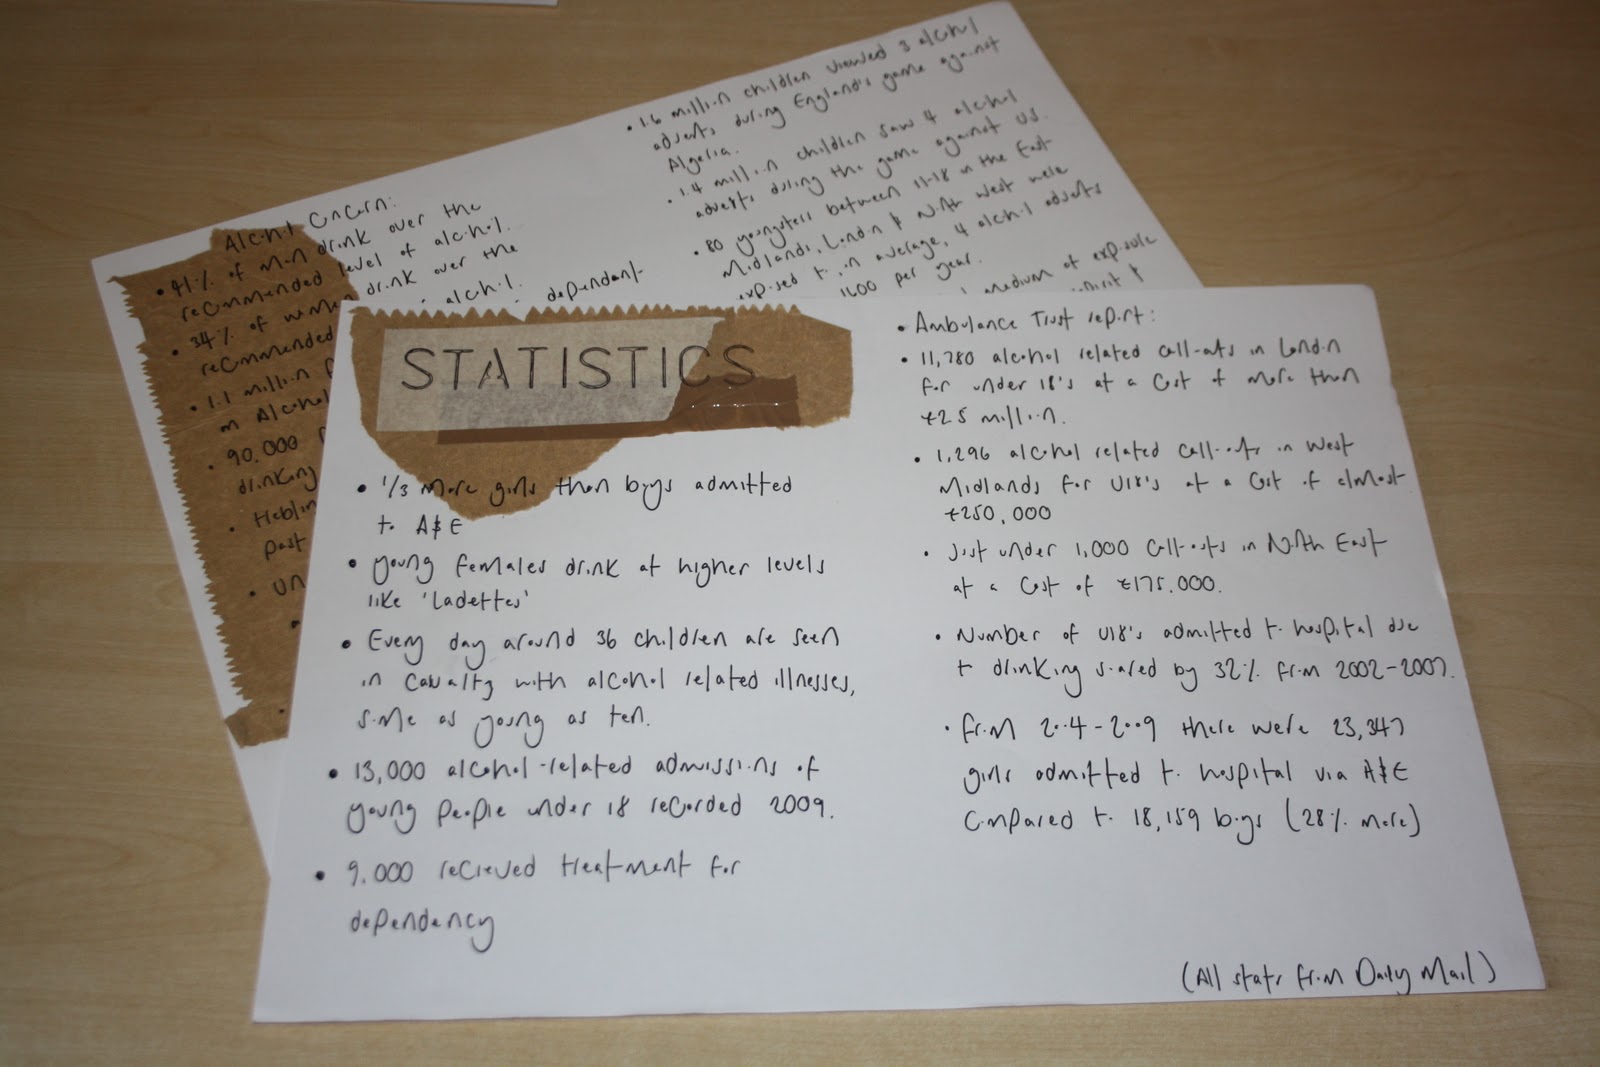 Alcohol Concern:
• 41% of men drink over the
recommended level of alcohol.
• 34% of women drink over the
recommended alcohol.
• 1.1 million dependant
on Alcohol
• 90,000
drinking
•
past
• Un
• 1.6 million children viewed 3 alcohol
adverts during England's game against
Algeria.
• 1.4 million children saw 4 alcohol
adverts during the game against US.
• 80 youngsters between 11-18 in the East
Midlands, London & North West were
exposed to, on average, 4 alcohol adverts
1600 per year.
medium of exposure
spirit &
STATISTICS
• 1/3 more girls than boys admitted
to A&E
• young females drink at higher levels
like 'Ladettes'
• Every day around 36 children are seen
in casualty with alcohol related illnesses,
some as young as ten.
• 13,000 alcohol-related admissions of
young people under 18 recorded 2009.
• 9,000 recieved treatment for
dependency
• Ambulance Trust report:
• 11,780 alcohol related call-outs in London
for under 18's at a cost of more than
£2.5 million.
• 1,296 alcohol related call-outs in West
Midlands for U18's at a cost of almost
£250,000
• Just under 1,000 call-outs in North East
at a cost of £175,000.
• Number of U18's admitted to hospital due
to drinking soared by 32% from 2002-2007.
• From 2004-2009 there were 23,347
girls admitted to hospital via A&E
compared to 18,159 boys (28% more)
(All stats from Daily Mail)